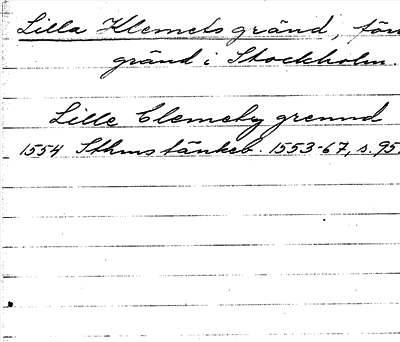 Lilla Klemets gränd, förr
gränd i Stockholm.
Lille Clemetz grennd
1554 Sthms tänkeb. 1553-67, s. 95.